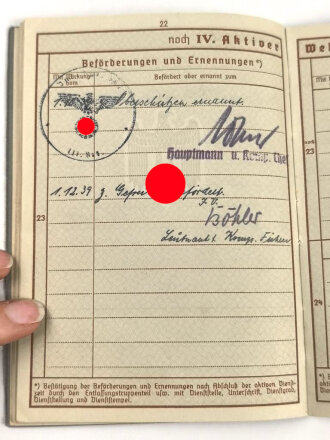 22
noch IV. Aktiver
Beförderungen und Ernennungen*)
Mit Wirkung vom
Befördert oder ernannt zum
Oberschützen ernannt.
Hauptmann u. Komp. Chef
1.12.39 z. Gefr
23
J.V.
Böhler
Leutnant u. Komp. Führer
24
*) Bestätigung der Beförderungen und Ernennungen nach Abschluß der aktiven Dienst-
zeit durch den Entlassungstruppenteil usw. mit Dienststelle, Unterschrift, Dienstgrad,
Dienststellung und Dienststempel.